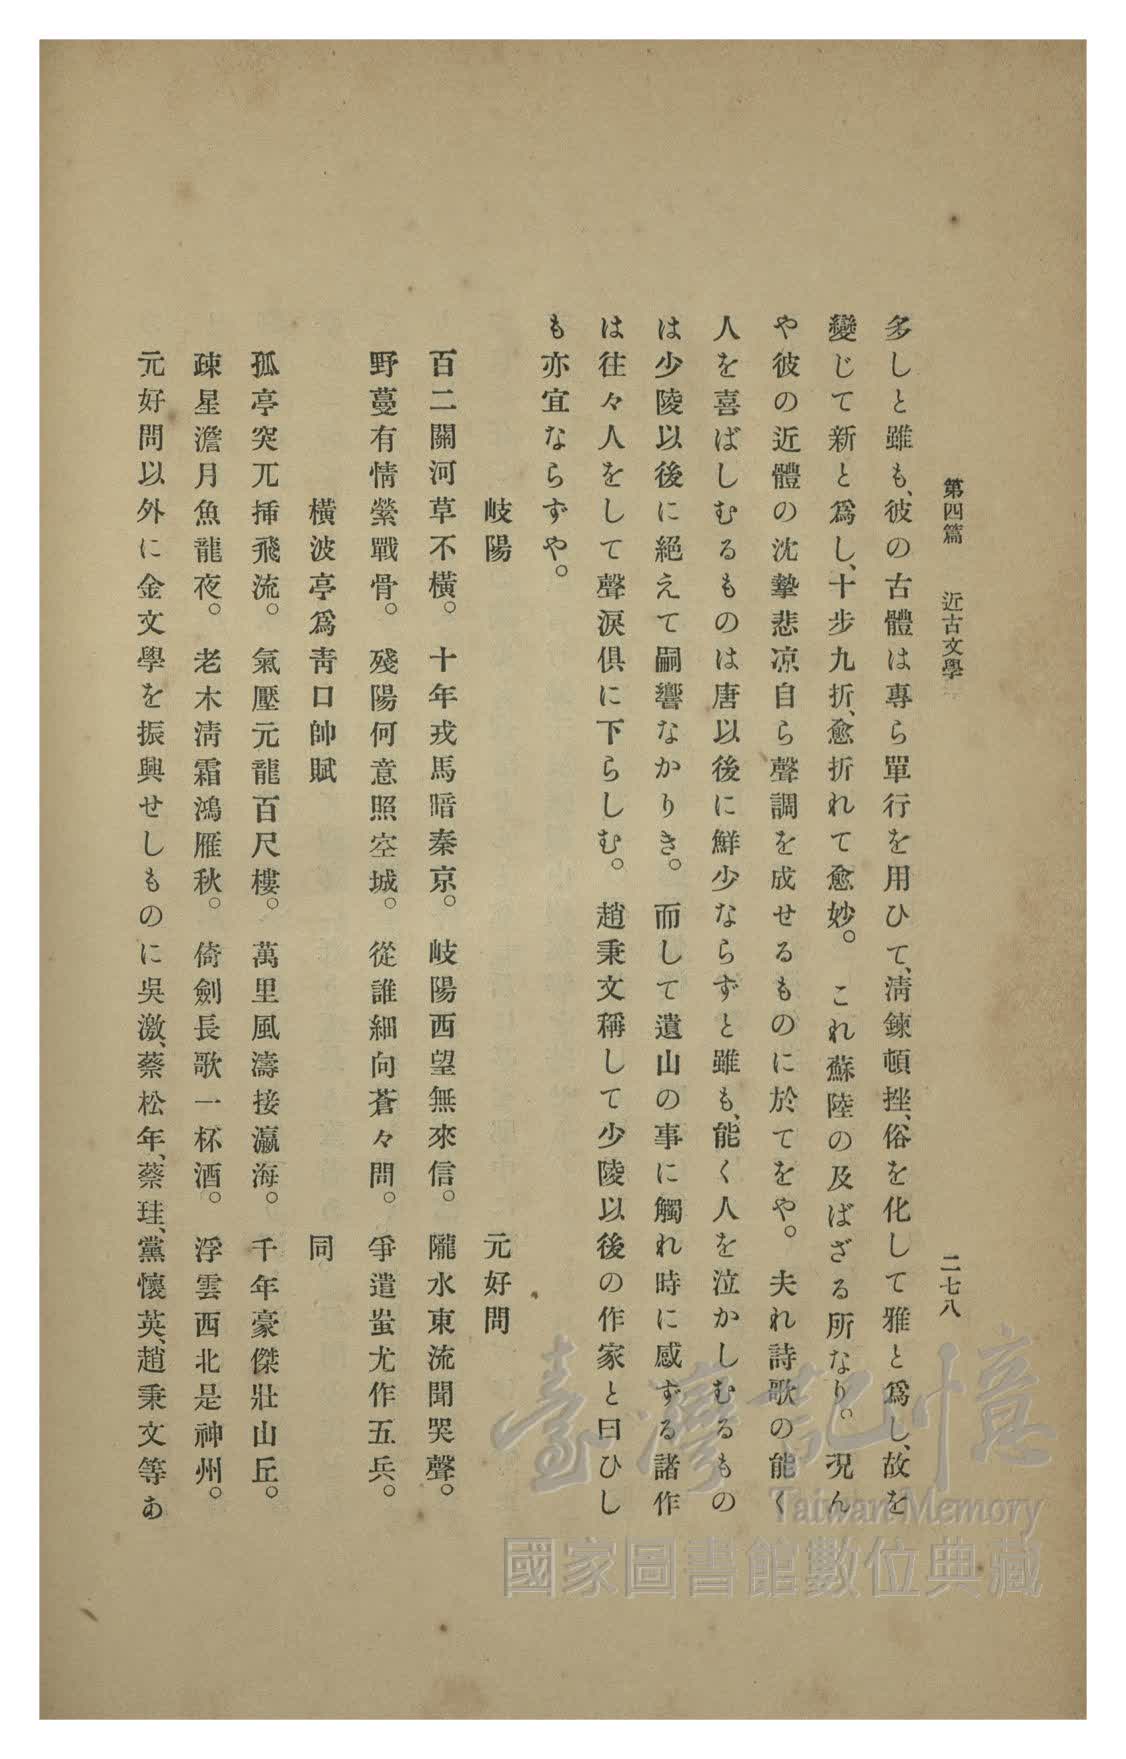 第四篇 近古文學 二七八
多しと雖も、彼の古體は專ら單行を用ひて、淸鍊頓挫、俗を化して雅と爲し、故を
變じて新と爲し、十步九折、愈折れて愈妙。これ蘇陸の及ばざる所なり。況ん
や彼の近體の沈摯悲凉自ら聲調を成せるものに於てをや。夫れ詩歌の能く
人を喜ばしむるものは唐以後に鮮少ならずと雖も、能く人を泣かしむるもの
は少陵以後に絕えて嗣響なかりき。而して遺山の事に觸れ時に感ずる諸作
は往々人をして聲淚俱に下らしむ。趙秉文稱して少陵以後の作家と曰ひし
も亦宜ならずや。
岐陽 元好問
百二關河草不橫。十年戎馬暗秦京。岐陽西望無來信。隴水東流聞哭聲。
野蔓有情縈戰骨。殘陽何意照空城。從誰細向蒼々問。爭遣蚩尤作五兵。
橫波亭爲靑口帥賦 同
孤亭突兀揷飛流。氣壓元龍百尺樓。萬里風濤接瀛海。千年豪傑壯山丘。
疎星澹月魚龍夜。老木淸霜鴻雁秋。倚劍長歌一杯酒。浮雲西北是神州。
元好問以外に金文學を振興せしものに吳激、蔡松年、蔡珪、黨懷英、趙秉文等あ
臺灣記憶
Taiwan Memory
國家圖書館數位典藏